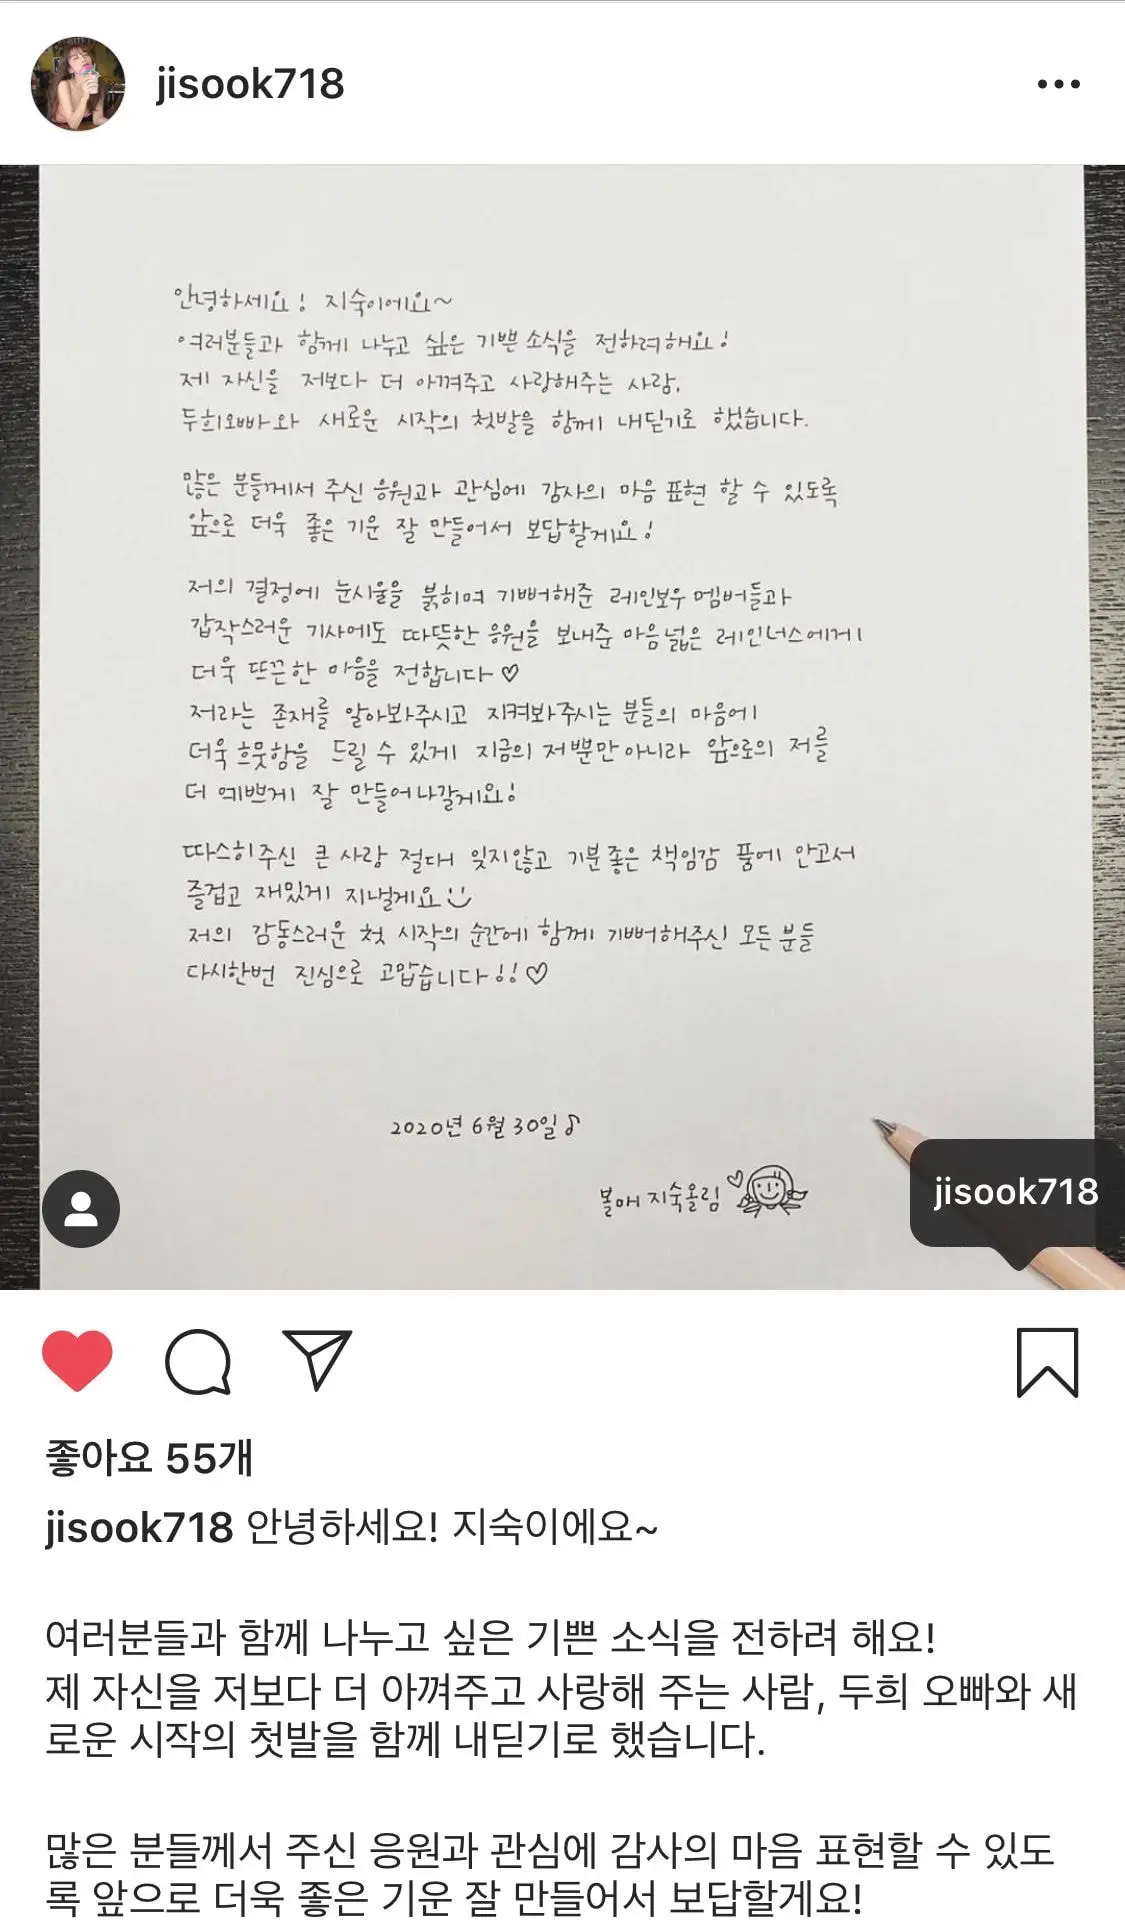 jisook718
안녕하세요! 지숙이에요~
여러분들과 함께 나누고 싶은 기쁜 소식을 전하려해요!
제 자신을 저보다 더 아껴주고 사랑해주는 사람,
두희오빠와 새로운 시작의 첫발을 함께 내딛기로 했습니다.
많은 분들께서 주신 응원과 관심에 감사의 마음 표현 할 수 있도록
앞으로 더욱 좋은 기운 잘 만들어서 보답할게요!
저의 결정에 눈시울을 붉히며 기뻐해준 레인보우 멤버들과
갑작스러운 기사에도 따뜻한 응원을 보내준 마음 넓은 레인너스에게
더욱 뜨끈한 마음을 전합니다♡
저라는 존재를 알아봐주시고 지켜봐주시는 분들의 마음에
더욱 흐뭇함을 드릴 수 있게 지금의 저뿐만 아니라 앞으로의 저를
더 예쁘게 잘 만들어나갈게요!
따스히 주신 큰 사랑 절대 잊지않고 기분 좋은 책임감 품에 안고서
즐겁고 재밌게 지낼게요
저의 감동스러운 첫 시작의 순간에 함께 기뻐해주신 모든 분들
다시한번 진심으로 고맙습니다!!♡
2020년 6월 30일♪
볼매 지숙올림♡
jisook718
좋아요 55개
jisook718 안녕하세요! 지숙이에요~
여러분들과 함께 나누고 싶은 기쁜 소식을 전하려 해요!
제 자신을 저보다 더 아껴주고 사랑해 주는 사람, 두희 오빠와 새
로운 시작의 첫발을 함께 내딛기로 했습니다.
많은 분들께서 주신 응원과 관심에 감사의 마음 표현할 수 있도
록 앞으로 더욱 좋은 기운 잘 만들어서 보답할게요!